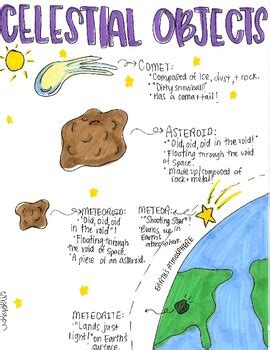 CELESTIAL OBJECTS
COMET:
*Composed of ice, dust, + rock.
*"Dirty snowball"
*Has a coma + tail!
ASTEROID:
*"Old, old, old in the void!"
*Floating through the void
of space.
*made up/composed of
rock + metal!
METEOROID:
*"Old, old, old
in the void"!
*Floating through
the void of space.
*A piece of an asteroid.
METEOR:
*"Shooting Star"!
*Burns up in
Earth's
atmosphere.
EARTH'S ATMOSPHERE
METEORITE:
*"Lands, just
right" on Earth's
surface.